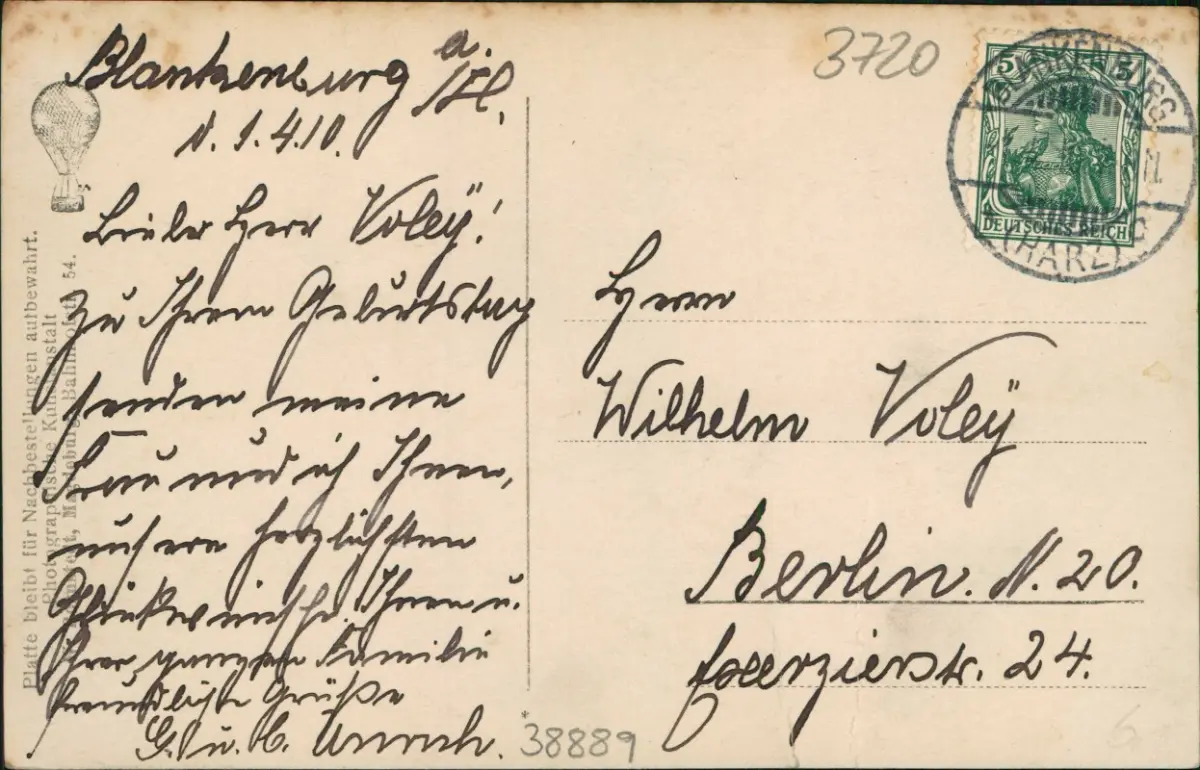 Blankenburg a.
/H.
d. 1.4.10.
Lieber Herr Voleÿ!
Zu Ihrem Geburtstag
senden meine
Frau und ich Ihnen,
unsere herzlichsten
Glückwünsche. Ihnen u.
Ihrer ganzen Familie
freundliche Grüße
G. u. C.
Platte bleibt für Nachbestellungen aufbewahrt.
Photographische Kunstanstalt
Magdeburg, Bahnhofstr. 54.
3720
5 5
DEUTSCHES REICH
BLANKENBURG
(HARZ)
Herrn
Wilhelm Voleÿ
Berlin. N. 20.
Exerzierstr. 24.
38889
6